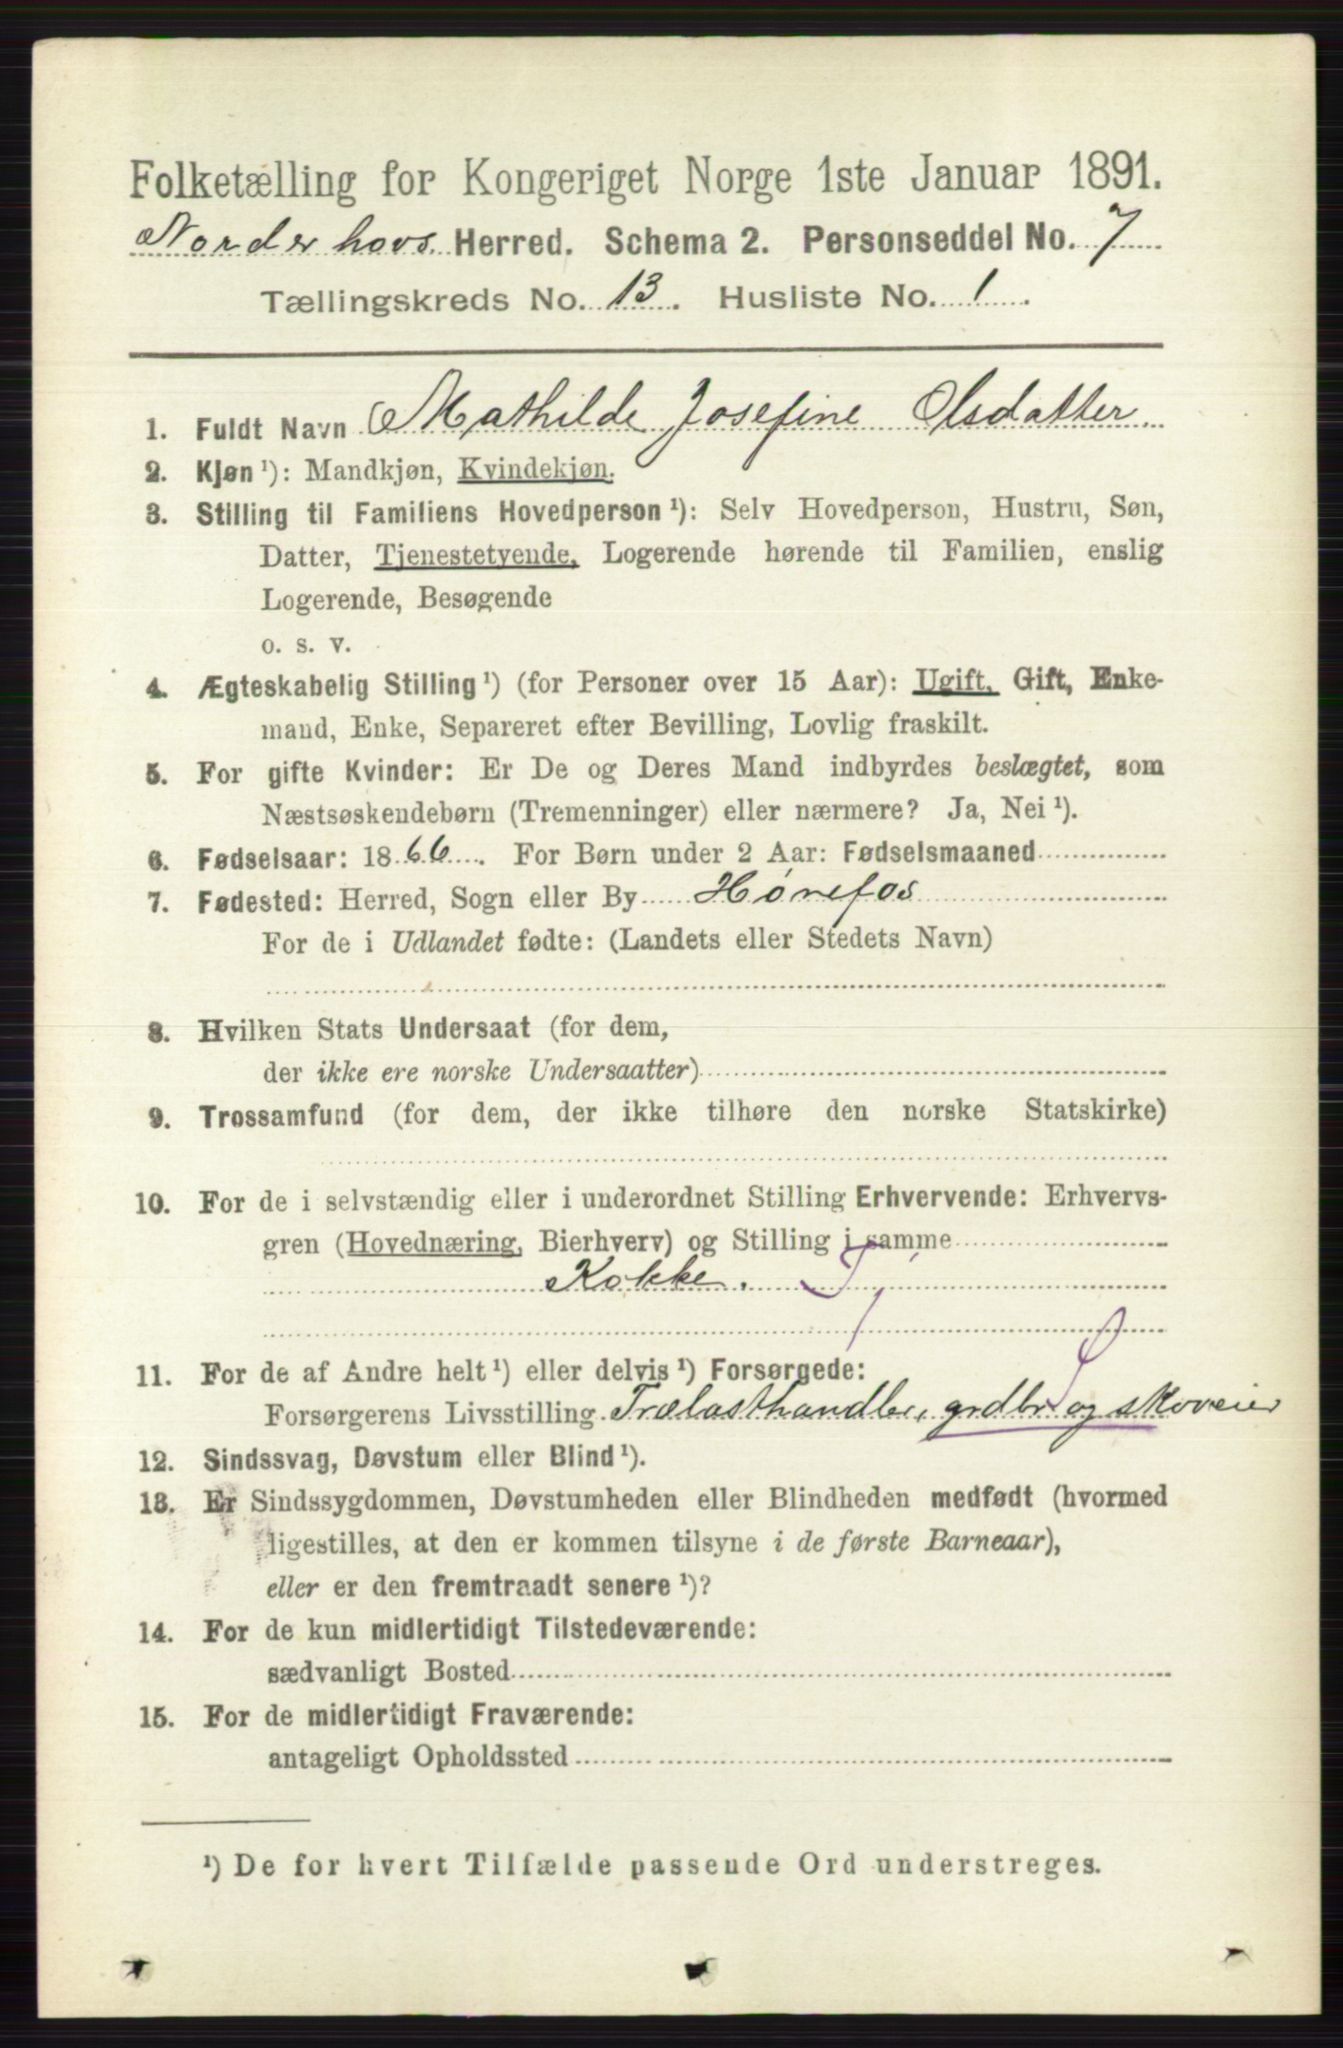 Folketælling for Kongeriget Norge 1ste Januar 1891.
Norderhovs Herred. Schema 2. Personseddel No. 7
Tællingskreds No. 13. Husliste No. 1.
1. Fuldt Navn Mathilde Josefine Olsdatter
2. Kjøn ¹): Mandkjøn, Kvindekjøn.
3. Stilling til Familiens Hovedperson ¹): Selv Hovedperson, Hustru, Søn,
Datter, Tjenestetyende, Logerende hørende til Familien, enslig
Logerende, Besøgende
o. s. v.
4. Ægteskabelig Stilling ¹) (for Personer over 15 Aar): Ugift, Gift, Enke-
mand, Enke, Separeret efter Bevilling, Lovlig fraskilt.
5. For gifte Kvinder: Er De og Deres Mand indbyrdes beslægtet, som
Næstsøskendebørn (Tremenninger) eller nærmere? Ja, Nei ¹).
6. Fødselsaar: 1866. For Børn under 2 Aar: Fødselsmaaned
7. Fødested: Herred, Sogn eller By Hønefos
For de i Udlandet fødte: (Landets eller Stedets Navn)
8. Hvilken Stats Undersaat (for dem,
der ikke ere norske Undersaatter)
9. Trossamfund (for dem, der ikke tilhøre den norske Statskirke)
10. For de i selvstændig eller i underordnet Stilling Erhvervende: Erhvervs-
gren (Hovednæring, Bierhverv) og Stilling i samme
Kokke. Tj
11. For de af Andre helt ¹) eller delvis ¹) Forsørgede:
Forsørgerens Livsstilling Trælasthandler, grdbr og skoveier
12. Sindssvag, Døvstum eller Blind ¹).
13. Er Sindssygdommen, Døvstumheden eller Blindheden medfødt (hvormed
ligestilles, at den er kommen tilsyne i de første Barneaar),
eller er den fremtraadt senere ¹)?
14. For de kun midlertidigt Tilstedeværende:
sædvanligt Bosted
15. For de midlertidigt Fraværende:
antageligt Opholdssted
¹) De for hvert Tilfælde passende Ord understreges.